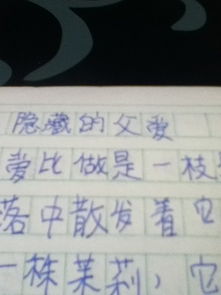 隐藏的父爱
爱比做是一枝
落中散发着它
一株茉莉，它